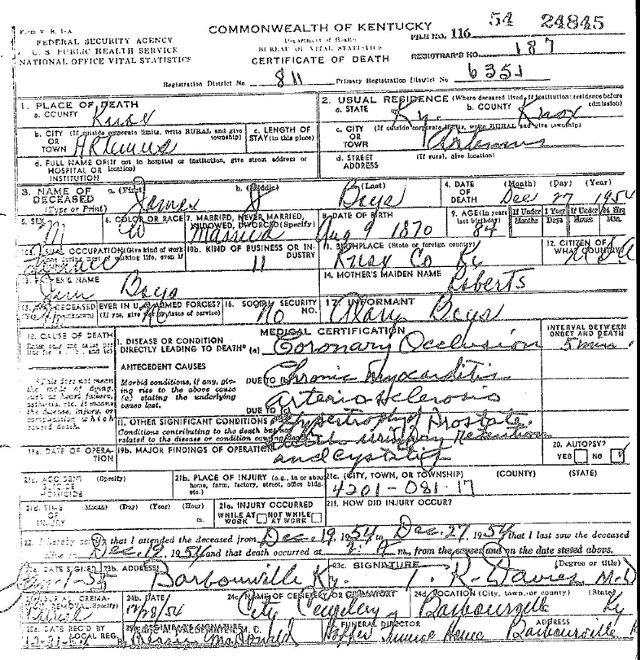 54 24845
COMMONWEALTH OF KENTUCKY
FILE NO. 116
FEDERAL SECURITY AGENCY
U. S. PUBLIC HEALTH SERVICE
NATIONAL OFFICE VITAL STATISTICS
Department of Health
BUREAU OF VITAL STATISTICS
CERTIFICATE OF DEATH
REGISTRAR'S NO. 187
Registration District No. 811 Primary Registration District No. 6351
1. PLACE OF DEATH
a. COUNTY Knox
2. USUAL RESIDENCE (Where deceased lived. If institution: residence before admission)
a. STATE Ky. b. COUNTY Knox
b. CITY OR TOWN (If outside corporate limits, write RURAL and give township) Artemus
c. LENGTH OF STAY (in this place)
c. CITY OR TOWN (If outside corporate limits, write RURAL and give township) Artemus
d. FULL NAME OF (If not in hospital or institution, give street address or location) HOSPITAL OR INSTITUTION
d. STREET ADDRESS (If rural, give location)
3. NAME OF DECEASED (Type or Print) a. (First) James b. (Middle) J c. (Last) Bays
4. DATE OF DEATH (Month) (Day) (Year) Dec 27 1954
5. SEX M
6. COLOR OR RACE W
7. MARRIED, NEVER MARRIED, WIDOWED, DIVORCED (Specify) Married
8. DATE OF BIRTH Aug 9 1870
9. AGE (In years last birthday) 84
If Under 1 Year Months Days If Under 24 Hrs Hours Min.
10a. USUAL OCCUPATION (Give kind of work done during most of working life, even if retired)
10b. KIND OF BUSINESS OR INDUSTRY 11
11. BIRTHPLACE (State or foreign country) Knox Co Ky
12. CITIZEN OF WHAT COUNTRY?
13. FATHER'S NAME Bays
14. MOTHER'S MAIDEN NAME Roberts
15. WAS DECEASED EVER IN U.S. ARMED FORCES? (If yes, give war or dates of service) No
16. SOCIAL SECURITY NO. No
17. INFORMANT Mary Bays
18. CAUSE OF DEATH
MEDICAL CERTIFICATION
INTERVAL BETWEEN ONSET AND DEATH
I. DISEASE OR CONDITION DIRECTLY LEADING TO DEATH* (a) Coronary Occlusion 5 min
ANTECEDENT CAUSES
Morbid conditions, if any, giving rise to the above cause (a) stating the underlying cause last.
DUE TO (b) Chronic Myocarditis
Arterio Sclerosis
DUE TO (c)
II. OTHER SIGNIFICANT CONDITIONS Hypertrophy of Prostate
Conditions contributing to the death but not related to the disease or condition causing death. Urinary Retention
19a. DATE OF OPERATION
19b. MAJOR FINDINGS OF OPERATION and cystitis
20. AUTOPSY? YES NO
21a. ACCIDENT SUICIDE HOMICIDE (Specify)
21b. PLACE OF INJURY (e.g., in or about home, farm, factory, street, office bldg., etc.)
21c. (CITY, TOWN, OR TOWNSHIP) (COUNTY) (STATE)
4201-081-17
21d. TIME OF INJURY (Month) (Day) (Year) (Hour)
21e. INJURY OCCURRED WHILE AT WORK NOT WHILE AT WORK
21f. HOW DID INJURY OCCUR?
22. I hereby certify that I attended the deceased from Dec. 19, 1954 to Dec. 27, 1954 that I last saw the deceased
alive on Dec. 19, 1954 and that death occurred at m., from the causes and on the date stated above.
23a. DATE SIGNED
23b. ADDRESS Barbourville Ky.
23c. SIGNATURE T. R. Davies M.D. (Degree or title)
24b. DATE 12/28/54
24c. NAME OF CEMETERY OR CREMATORY City Cemetery
24d. LOCATION (City, town, or county) (State) Barbourville Ky
25a. DATE REC'D BY LOCAL REG.
REGISTRAR'S SIGNATURE McDonald
FUNERAL DIRECTOR Hopper Funeral Home
ADDRESS Barbourville